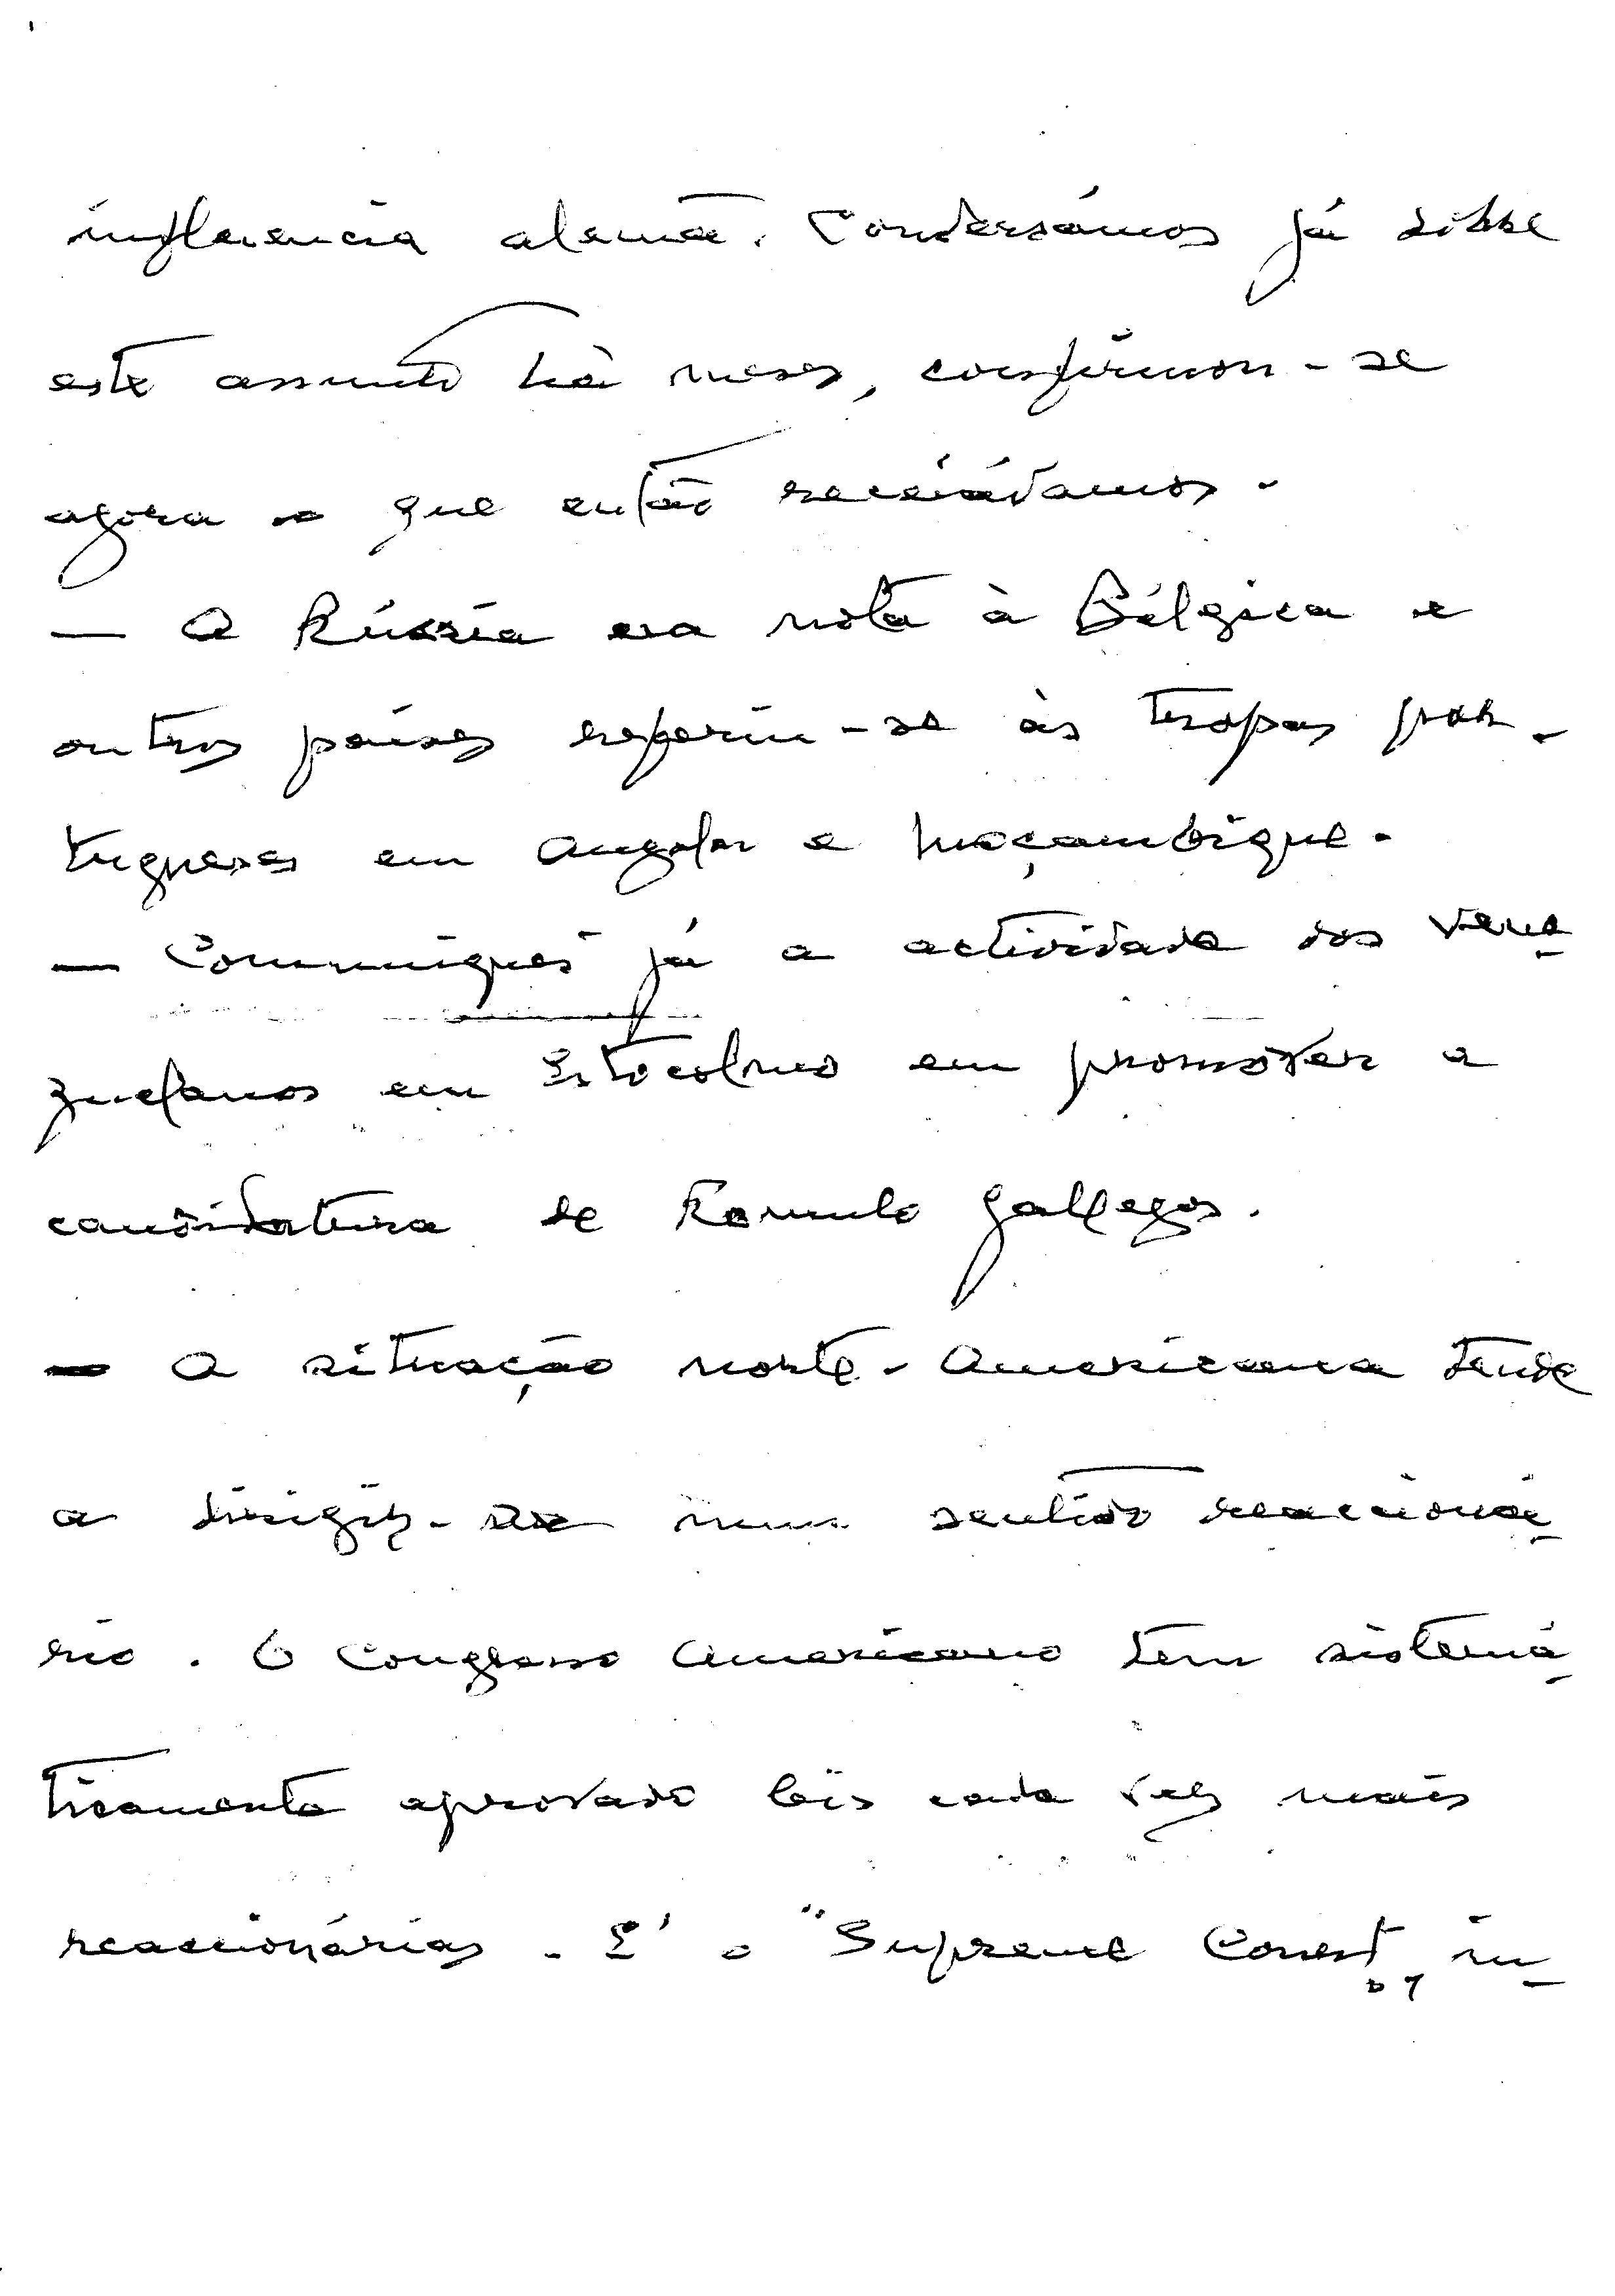 influencia alemã. Conversámos já sôbre
este assunto há meses, confirmou-se
agora o que então receávamos.
— A Rússia na nota à Bélgica e
outros países referiu-se às tropas por-
tuguesas em Angola e Moçambique.
— Comuniquei já a actividade dos vene-
zuelanos em Estocolmo em promover a
candidatura de Romulo Gallegos.
— A situação norte-americana tende
a dirigir-se num sentido reaccioná-
rio. O Congresso Americano tem sistemá-
ticamente aprovado leis cada vez mais
reaccionárias. E' o "Supreme Court", in-